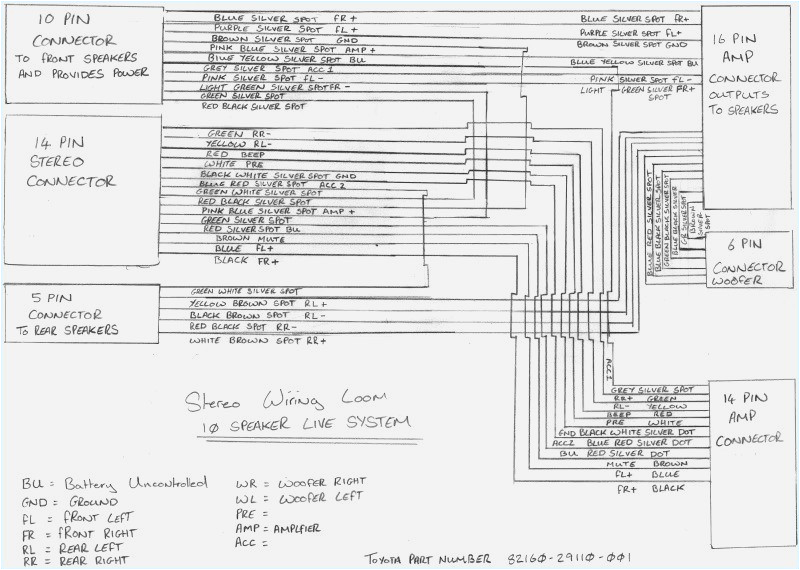 10 PIN
CONNECTOR
TO FRONT SPEAKERS
AND PROVIDES POWER
BLUE SILVER SPOT FR+
PURPLE SILVER SPOT FL+
BROWN SILVER SPOT GND
PINK BLUE SILVER SPOT AMP+
BLUE YELLOW SILVER SPOT BU
GREY SILVER SPOT ACC 1
PINK SILVER SPOT FL-
LIGHT GREEN SILVER SPOT FR-
GREEN SILVER SPOT
RED BLACK SILVER SPOT
BLUE SILVER SPOT FR+
PURPLE SILVER SPOT FL+
BROWN SILVER SPOT GND
BLUE YELLOW SILVER SPOT BU
PINK SILVER SPOT FL-
LIGHT GREEN SILVER FR+
SPOT
16 PIN
AMP
CONNECTOR
OUTPUTS
TO SPEAKERS
14 PIN
STEREO
CONNECTOR
GREEN RR-
YELLOW RL-
RED BEEP
WHITE PRE
BLACK WHITE SILVER SPOT GND
BLUE RED SILVER SPOT ACC 2
GREEN WHITE SILVER SPOT
RED BLACK SILVER SPOT
PINK BLUE SILVER SPOT AMP +
GREEN SILVER SPOT
RED SILVER SPOT BU
BROWN MUTE
BLUE FL+
BLACK FR+
BLUE RED SILVER SPOT
BLUE BLACK SILVER SPOT
GREEN BLACK SILVER SPOT
BLUE BLACK SILVER
GR SILVER SPOT
BROWN
SILVER
SPOT
6 PIN
CONNECTOR
WOOFER
5 PIN
CONNECTOR
TO REAR SPEAKERS
GREEN WHITE SILVER SPOT
YELLOW BROWN SPOT RL+
BLACK BROWN SPOT RL-
RED BLACK SPOT RR-
WHITE BROWN SPOT RR+
ACC1
GREY SILVER SPOT
RR+ GREEN
RL- YELLOW
BEEP RED
PRE WHITE
GND BLACK WHITE SILVER DOT
ACC2 BLUE RED SILVER DOT
BU RED SILVER DOT
MUTE BROWN
FL+ BLUE
FR+ BLACK
14 PIN
AMP
CONNECTOR
Stereo Wiring Loom
10 SPEAKER LIVE SYSTEM
BU = Battery Uncontrolled
GND = GROUND
FL = FRONT LEFT
FR = FRONT RIGHT
RL = REAR LEFT
RR = REAR RIGHT
WR = WOOFER RIGHT
WL = WOOFER LEFT
PRE =
AMP = AMPLFIER
ACC =
TOYOTA PART NUMBER 82160-29110-001